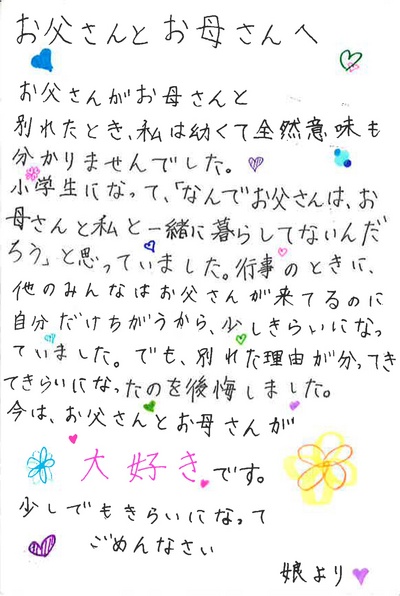 お父さんとお母さんへ
お父さんがお母さんと
別れたとき、私は幼くて全然意味も
分かりませんでした。
小学生になって、「なんでお父さんは、お
母さんと私と一緒に暮らしてないんだ
ろう」と思っていました。行事のときに、
他のみんなはお父さんが来てるのに
自分だけちがうから、少しきらいになっ
ていました。でも、別れた理由が分ってき
てきらいになったのを後悔しました。
今は、お父さんとお母さんが
大好きです。
少しでもきらいになって
ごめんなさい
娘より